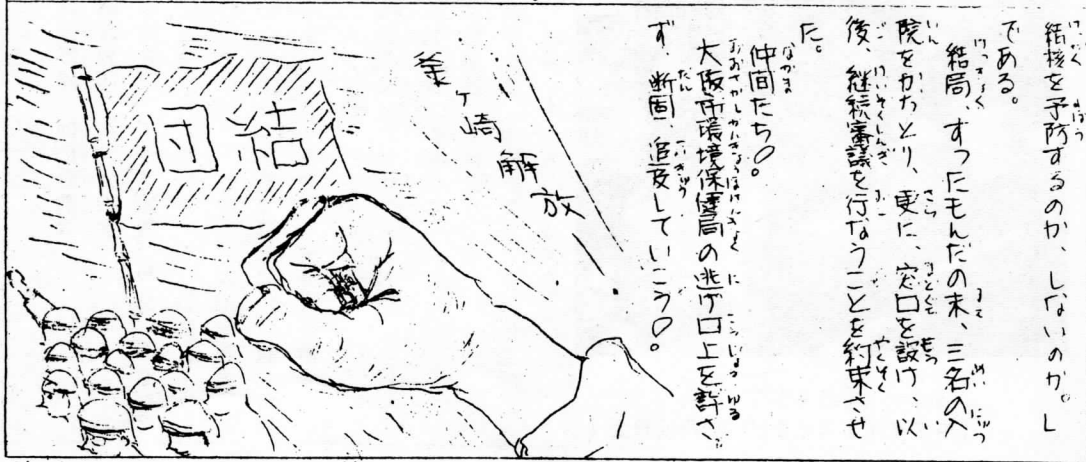 結核を予防するのか、しないのか。」
である。
結局、すったもんだの末、三名の入
院をかちとり、更に、窓口を設け、以
後、継続審議を行なうことを約束させ
た。
仲間たち!
大阪市環境保健局の逃げ口上を許さ
ず、断固、追及していこう!
釜ヶ崎解放
団結